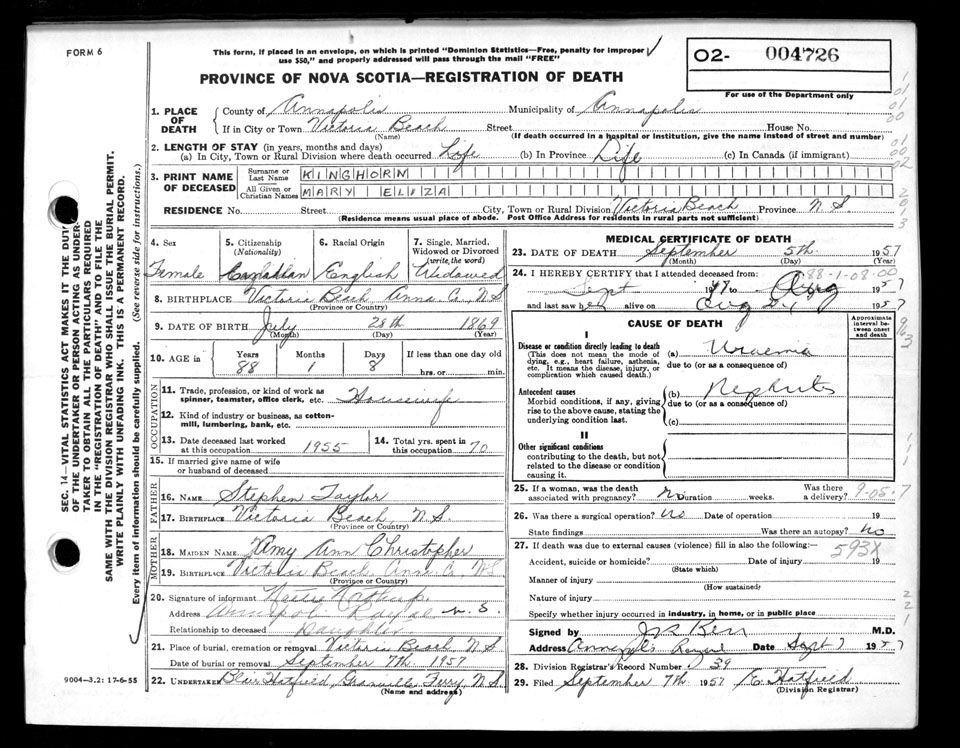 FORM 6
This form, if placed in an envelope, on which is printed "Dominion Statistics—Free, penalty for improper
use $50," and properly addressed will pass through the mail "FREE"
PROVINCE OF NOVA SCOTIA—REGISTRATION OF DEATH
02- 004726
For use of the Department only
1. PLACE OF DEATH
County of Annapolis Municipality of Annapolis
If in City or Town Victoria Beach Street House No.
(Name) (If death occurred in a hospital or institution, give the name instead of street and number)
2. LENGTH OF STAY (in years, months and days)
(a) In City, Town or Rural Division where death occurred Life (b) In Province Life (c) In Canada (if immigrant)
3. PRINT NAME OF DECEASED
Surname or Last Name KINGHORN
All Given or Christian Names MARY ELIZA
RESIDENCE No. Street City, Town or Rural Division Victoria Beach Province N.S.
(Residence means usual place of abode. Post Office Address for residents in rural parts not sufficient)
4. Sex
Female
5. Citizenship (Nationality)
Canadian
6. Racial Origin
English
7. Single, Married, Widowed or Divorced (write the word)
Widowed
8. BIRTHPLACE Victoria Beach Anna Co., N.S.
(Province or Country)
9. DATE OF BIRTH July 28th 1869
(Month) (Day) (Year)
10. AGE in Years Months Days If less than one day old
88 1 8 hrs. or min.
OCCUPATION
11. Trade, profession, or kind of work as
spinner, teamster, office clerk, etc. Housewife
12. Kind of industry or business, as cotton-
mill, lumbering, bank, etc.
13. Date deceased last worked at this occupation 1955
14. Total yrs. spent in this occupation 70
15. If married give name of wife
or husband of deceased
FATHER
16. NAME Stephen Taylor
17. BIRTHPLACE Victoria Beach, N.S.
(Province or Country)
MOTHER
18. MAIDEN NAME Amy Ann Christopher
19. BIRTHPLACE Victoria Beach Anna Co., N.S.
(Province or Country)
20. Signature of informant
Address Annapolis Royal N.S.
Relationship to deceased Daughter
21. Place of burial, cremation or removal Victoria Beach, N.S.
Date of burial or removal September 7th, 1957
22. UNDERTAKER Blair Hatfield, Granville Ferry, N.S.
(Name and address)
MEDICAL CERTIFICATE OF DEATH
23. DATE OF DEATH September 5th 1957
(Month) (Day) (Year)
24. I HEREBY CERTIFY that I attended deceased from: 88-1-08-00
Sept Aug 1957
and last saw her alive on Aug 1957
CAUSE OF DEATH
Approximate interval between onset and death
I
Disease or condition directly leading to death (a) Uraemia
(This does not mean the mode of dying, e.g., heart failure, asthenia, etc. It means the disease, injury, or complication which caused death.)
due to (or as a consequence of)
Antecedent causes (b) Nephritis
Morbid conditions, if any, giving rise to the above cause, stating the underlying condition last.
due to (or as a consequence of)
(c)
II
Other significant conditions
contributing to the death, but not
related to the disease or condition
causing it.
25. If a woman, was the death associated with pregnancy? no Duration weeks. Was there a delivery? 9-05-7
26. Was there a surgical operation? no Date of operation 19
State findings Was there an autopsy? no
27. If death was due to external causes (violence) fill in also the following:— 593X
Accident, suicide or homicide? Date of injury 19
(State which)
Manner of injury
(How sustained)
Nature of injury
Specify whether injury occurred in industry, in home, or in public place
Signed by Kerr M.D.
Address Annapolis Royal Date Sept 7 1957
28. Division Registrar's Record Number 39
29. Filed September 7th 1957 E. Hatfield
(Division Registrar)
SEC. 14—VITAL STATISTICS ACT MAKES IT THE DUTY
OF THE UNDERTAKER OR PERSON ACTING AS UNDER-
TAKER TO OBTAIN ALL THE PARTICULARS REQUIRED
IN THE "REGISTRATION OF DEATH" AND TO FILE THE
SAME WITH THE DIVISION REGISTRAR WHO SHALL ISSUE THE BURIAL PERMIT.
WRITE PLAINLY WITH UNFADING INK. THIS IS A PERMANENT RECORD.
Every item of information should be carefully supplied. (See reverse side for instructions.)
9004—3.2: 17-6-55